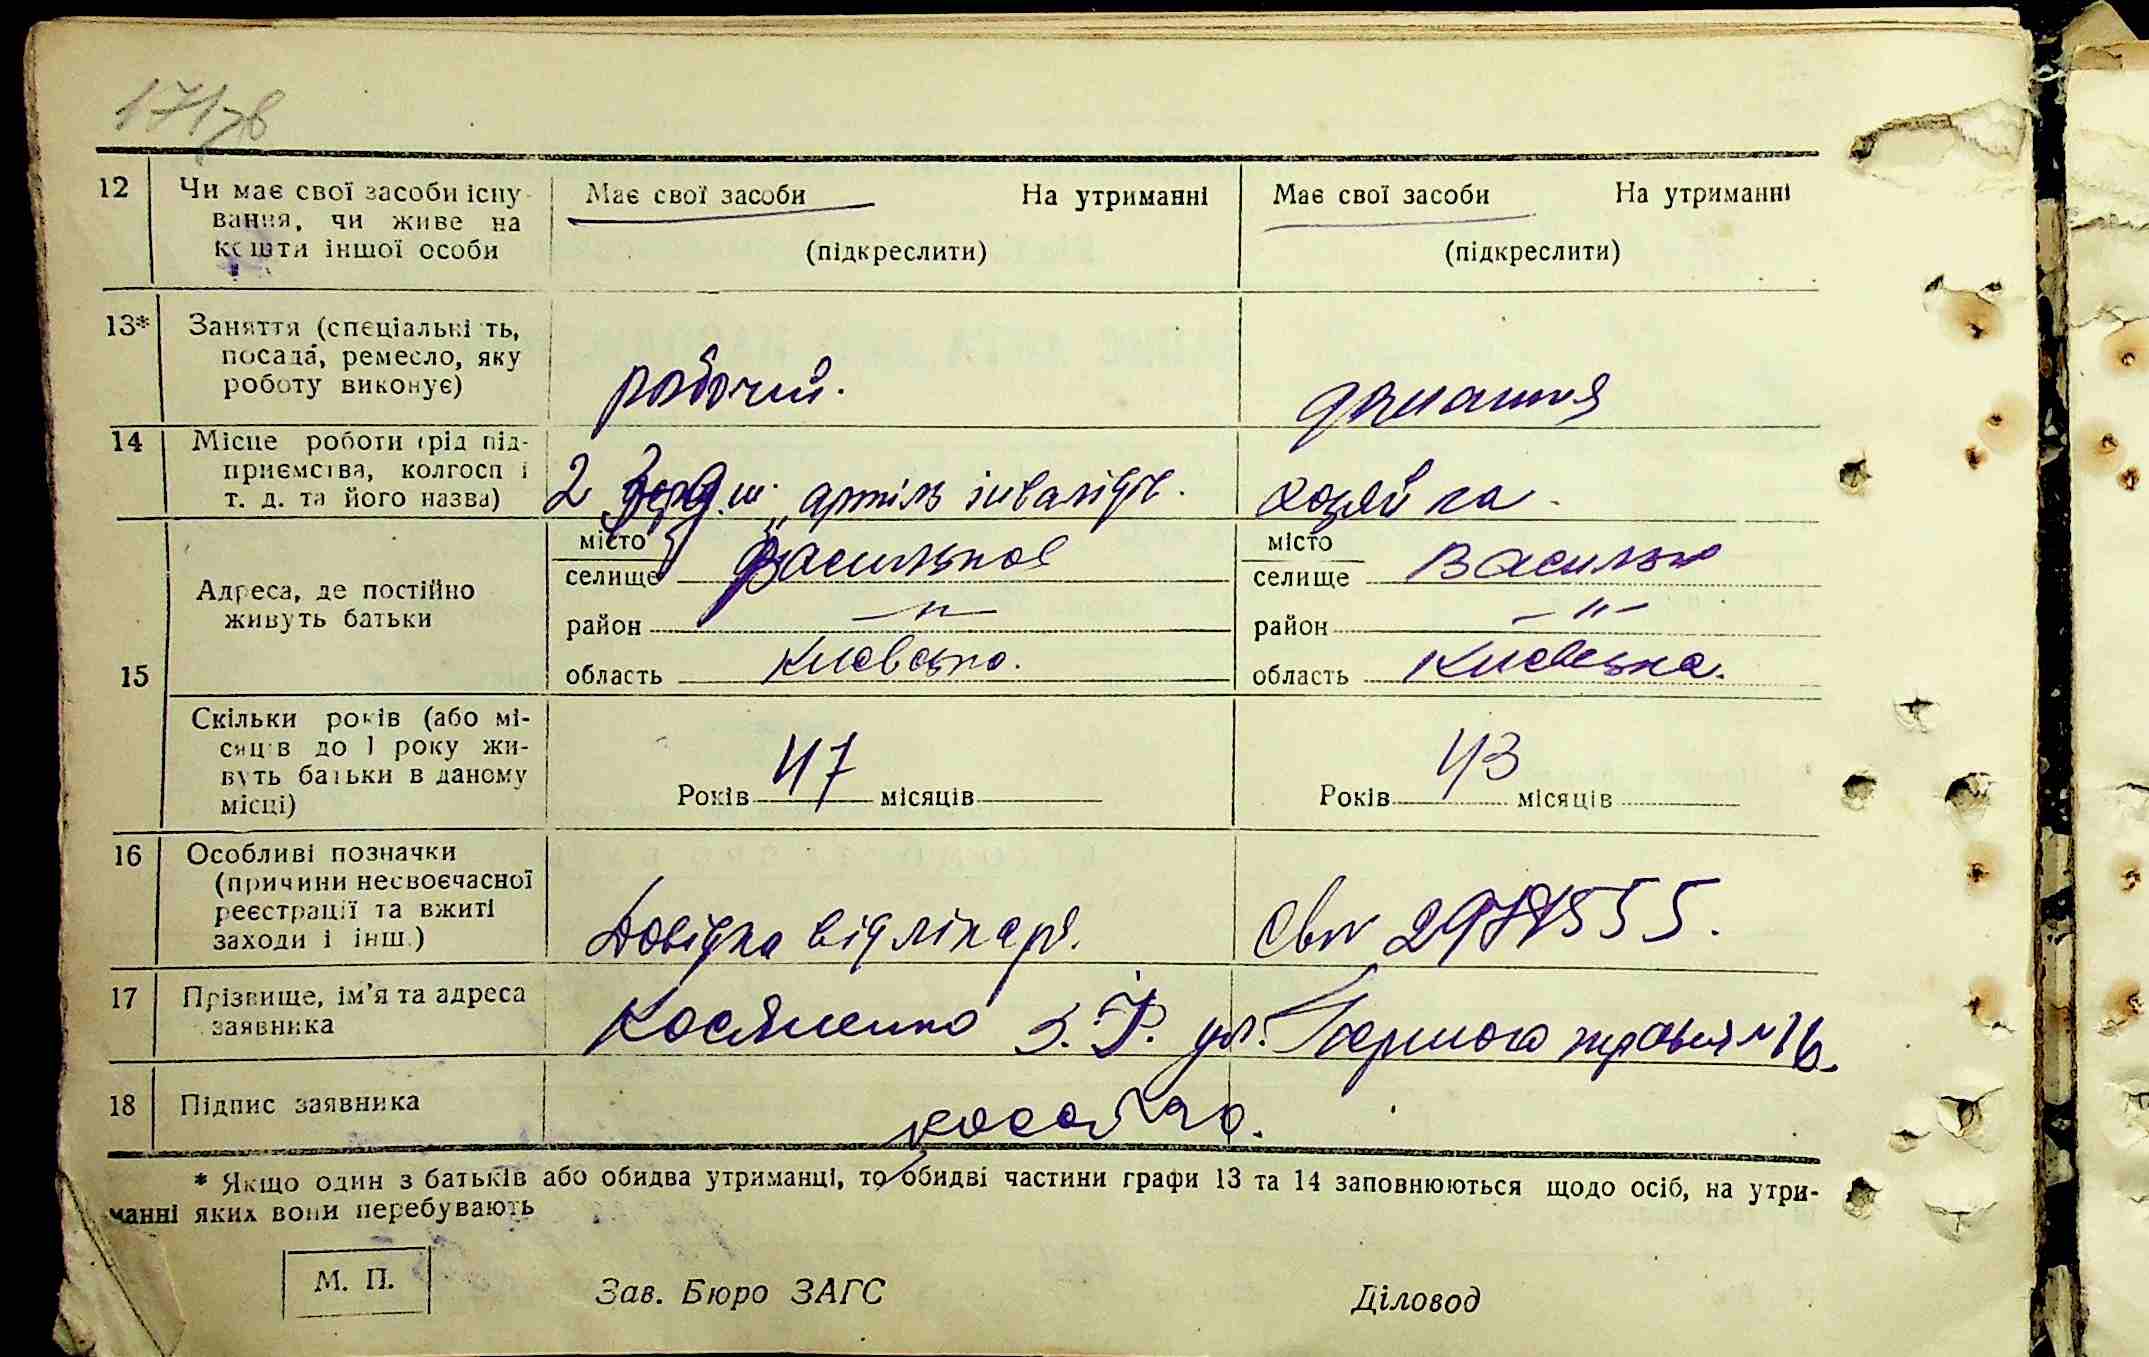 171зв
12 Чи має свої засоби існування, чи живе на кошти іншої особи
Має свої засоби На утриманні
(підкреслити)
Має свої засоби На утриманні
(підкреслити)
13* Заняття (спеціальність,
посада, ремесло, яку
роботу виконує)
робочий.
домашня
14 Місце роботи (рід під-
приємства, колгосп і
т. д. та його назва)
2 артіль інвалідів.
хозяйка.
15
Адреса, де постійно
живуть батьки
місто
селище Васильков
район —"—
область Київська.
місто
селище Васильк
район —"—
область Київська.
Скільки років (або мі-
сяців до 1 року жи-
вуть батьки в даному
місці)
Років 47 місяців
Років 43 місяців
16 Особливі позначки
(причини несвоєчасної
реєстрації та вжиті
заходи і інш.)
Довідка від лікаря.
17 Прізвище, ім'я та адреса
заявника
Косяненко ул. Первого травня №16.
18 Підпис заявника
* Якщо один з батьків або обидва утриманці, то обидві частини графи 13 та 14 заповнюються щодо осіб, на утри-
манні яких вони перебувають
М. П.
Зав. Бюро ЗАГС
Діловод